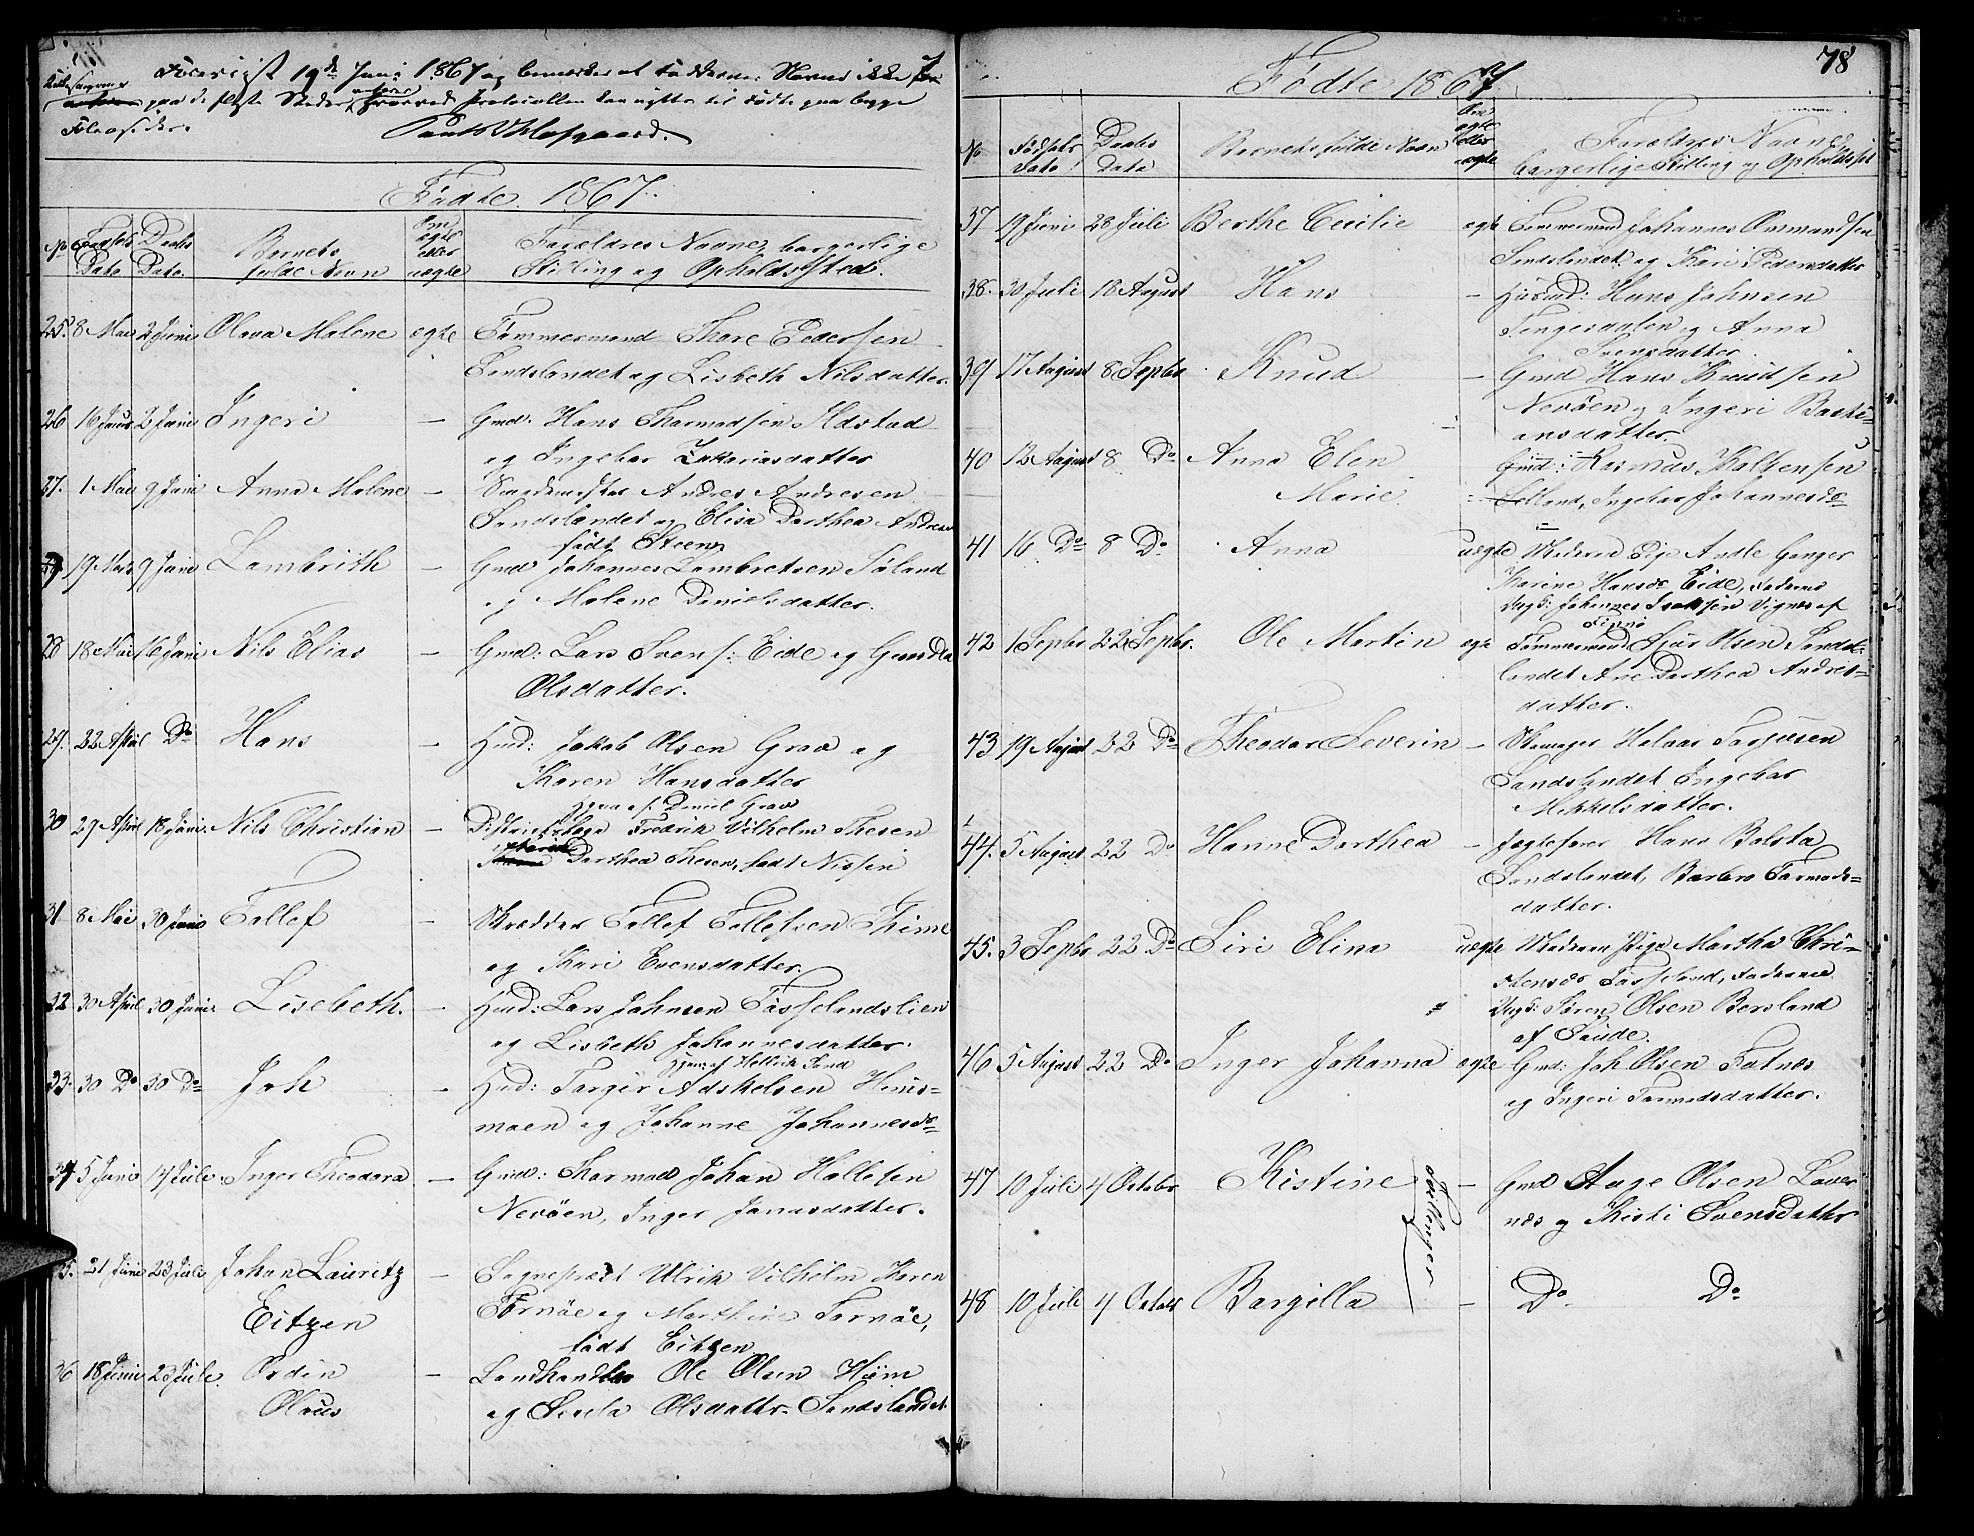 Foreviist 19de Juni 1867 og bemærkes at Faddernes Navne ikke
paa de fleste Steder, Protocollen kan nyttes til Fødte paa begge
Foliosider.
Fødte 1867.
No Fødsels Dato Daabs Dato. Barnets fulde Navn Om ægte eller uægte Forældres Navne, borgerlige Stilling og Opholdssted.
25. 8 Mai 2 Juni Olava Malene ægte Tømmermand Thore Pedersen
Sandslandet og Lisbeth Nilsdatter.
26 16 2 Juni Ingeri — Gmd. Hans Thormodsen Ilstad
og Ingebor Zakariasdatter
27. 1 Mai 9 Juni Anna Malene — Andres Andresen
Sandslandet og Elisa Dorthea Andresen
født Steen
19 Marts 9 Juni Lambrith — Gmd Johannes Lambretsen Føland
og Malene Danielsdatter.
28 18 Mai 16 Juni Nils Elias — Gmd: Lars Svens: Eide og Gunda
Olsdatter.
29. 22 April Do Hans — Hmd: Jakob Olsen Grav og
Karen Hansdatter
Hjem af Daniel Grav
30 29 April 18 Juni. Nils Christian — Districtslæge Fredrik Vilhelm Thesen
Dorthea Thesen, født Nissen
31 8 Mai 30 Juni Tollef — Skrædder Tollef Tollefsen Thime
og Kari Evensdatter
32 30 April 30 Juni Lisebeth. — Hmd: Lars Johnsen Tasselandslien
og Lisbeth Johannesdatter.
Hjem af Hellrik Sand
33. 30 Do 30 Do Joh — Hmd: Targir Adskelsen Huns-
moen og Johanne Johannesdr
34 5 Juni 14 Juli. Inger Theodora — Gmd: Thormod Johan Hallesen
Nevøen, Inger Jonasdatter.
35. 21 Juni 23 Juli Johan Lauritz — Sognepræst Ulrik Vilhelm Koren
Eitzen Tornøe og Marthine Tornøe,
født Eitzen
36 18 Juni 23 Juli. Ordin — Landhandler Ole Olsen Hiim
Olaus og Severla Olsdattr. Sandslandet
78
Fødte 1867.
No Fødsels Dato Daabs Dato Barnets fulde Navn Om ægte eller uægte Forældres Navne, borgerlige Stilling og Opholdsst
37 19 Juni 28 Juli Berthe Cecilie ægte Tømmermand Johannes Ommundsen
Sandslandet og Kari Pedersdatter
38. 30 Juli 18 August Hans — Husmd: Hans Johnsen
Tengesdalen og Anna
Svensdatter.
39 17 August 8 Septbr Knud — Gmd Hans Knudsen
Nevøen og Ingeri Basti-
ansdatter
40 12 August 8 Do Anna Elen — Gmd: Rasmus Kolbensen
Marie Lølland, Ingebor Johannesdr
41 16 Do 8 Do Anna uægte Moderen Pige Andle Ganger
Karine Hansdr Eide, Faderens
Ungk: Johannes Isaksen Vignes af
Finnø
42 1 Septbr 22 Septbr. Ole Martin ægte Tømmermand Sjur Olsen Sands-
landet Ane Dorthea Andres-
datter.
43 19 August 22 Do Theodor Severin — Skomager Halvar Tarjusen
Sandslandet Ingebor
Mikkelsdatter.
44. 5 August 22 Do Hanne Dorthea — Jægtefører Hans Bolsta
Sandslandet, Barbro Tormods-
datter.
45. 3 Septbr 22 Do Siri Elina uægte Moderen Pige Martha Chri-
stensdr Tasseland, Faderen
Ungk: Søren Olsen Bersland
af Saude.
46 5 August 22 Do Inger Johanna ægte Gmd: Joh Olsen Fatnes
og Ingeri Tormodsdatter.
47 10 Juli 4 Octobr Kistine — Gmd Aage Olsen Laver
næs og Kisti Svensdatter
Tvillinger
48 10 Juli 4 Octobr Bargilla — Do Do